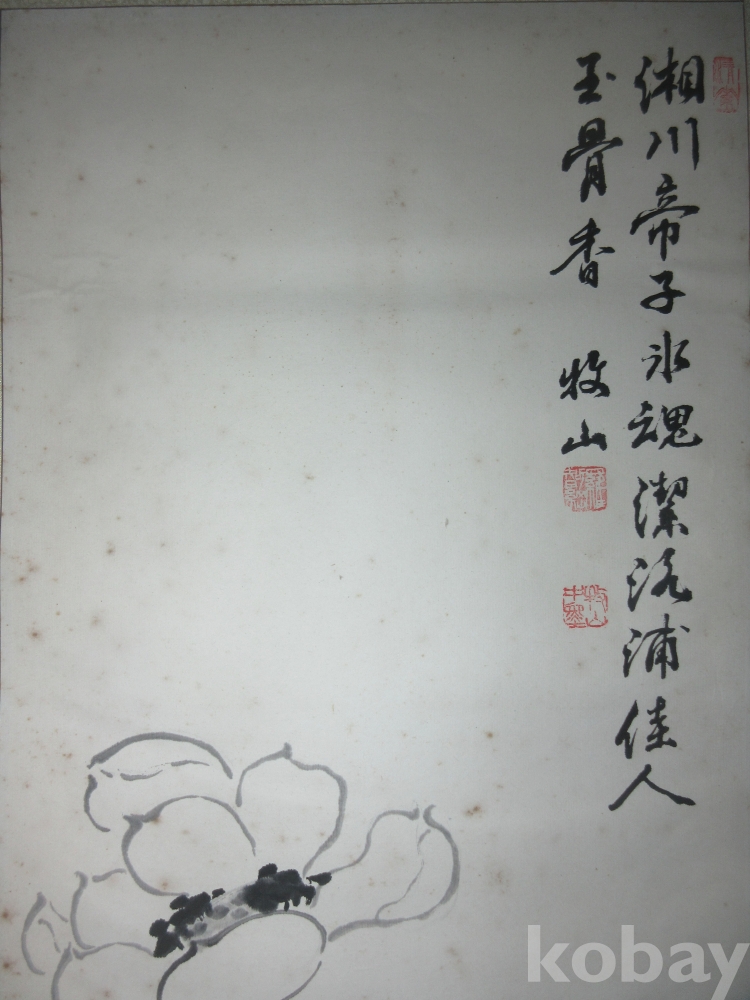 湘川帝子氷魂潔洛浦佳人
玉骨香 牧山
kobay